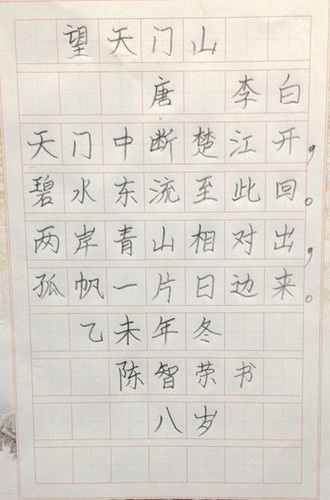 望天门山
唐 李白
天门中断楚江开，
碧水东流至此回。
两岸青山相对出，
孤帆一片日边来。
乙未年冬
陈智荣书
八岁